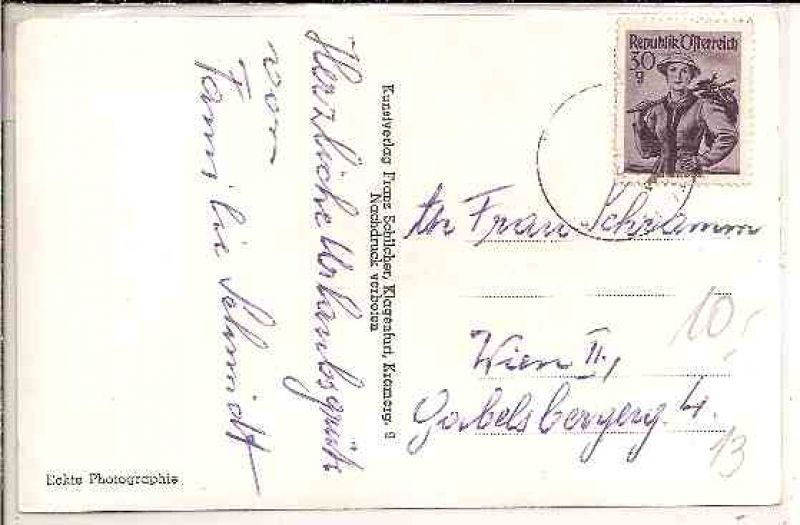 Herzliche Urlaubsgrüße
von
Familie Schmidt
Kunstverlag Franz Schilcher, Klagenfurt, Kramerg. 9
Nachdruck verboten
Republik Österreich
30
g
An Frau Schramm
10,-
Wien II,
Gabelsbergerg. 4.
13
Echte Photographie